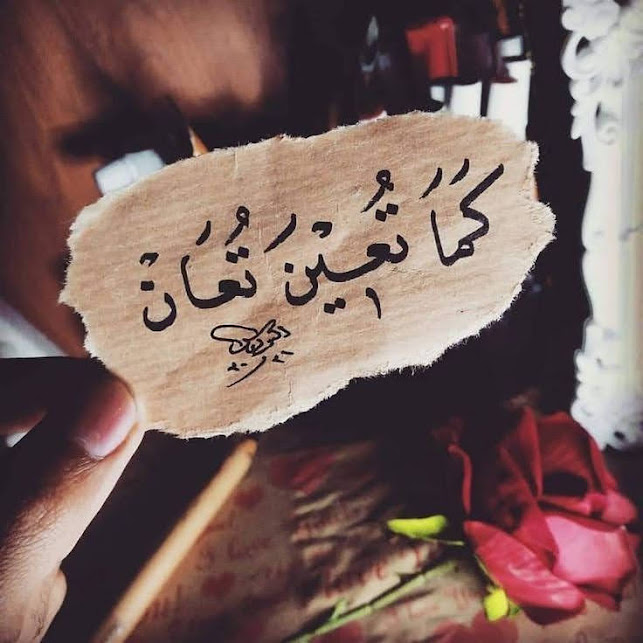 كَمَا تُعِيْنَ تُعَانْ